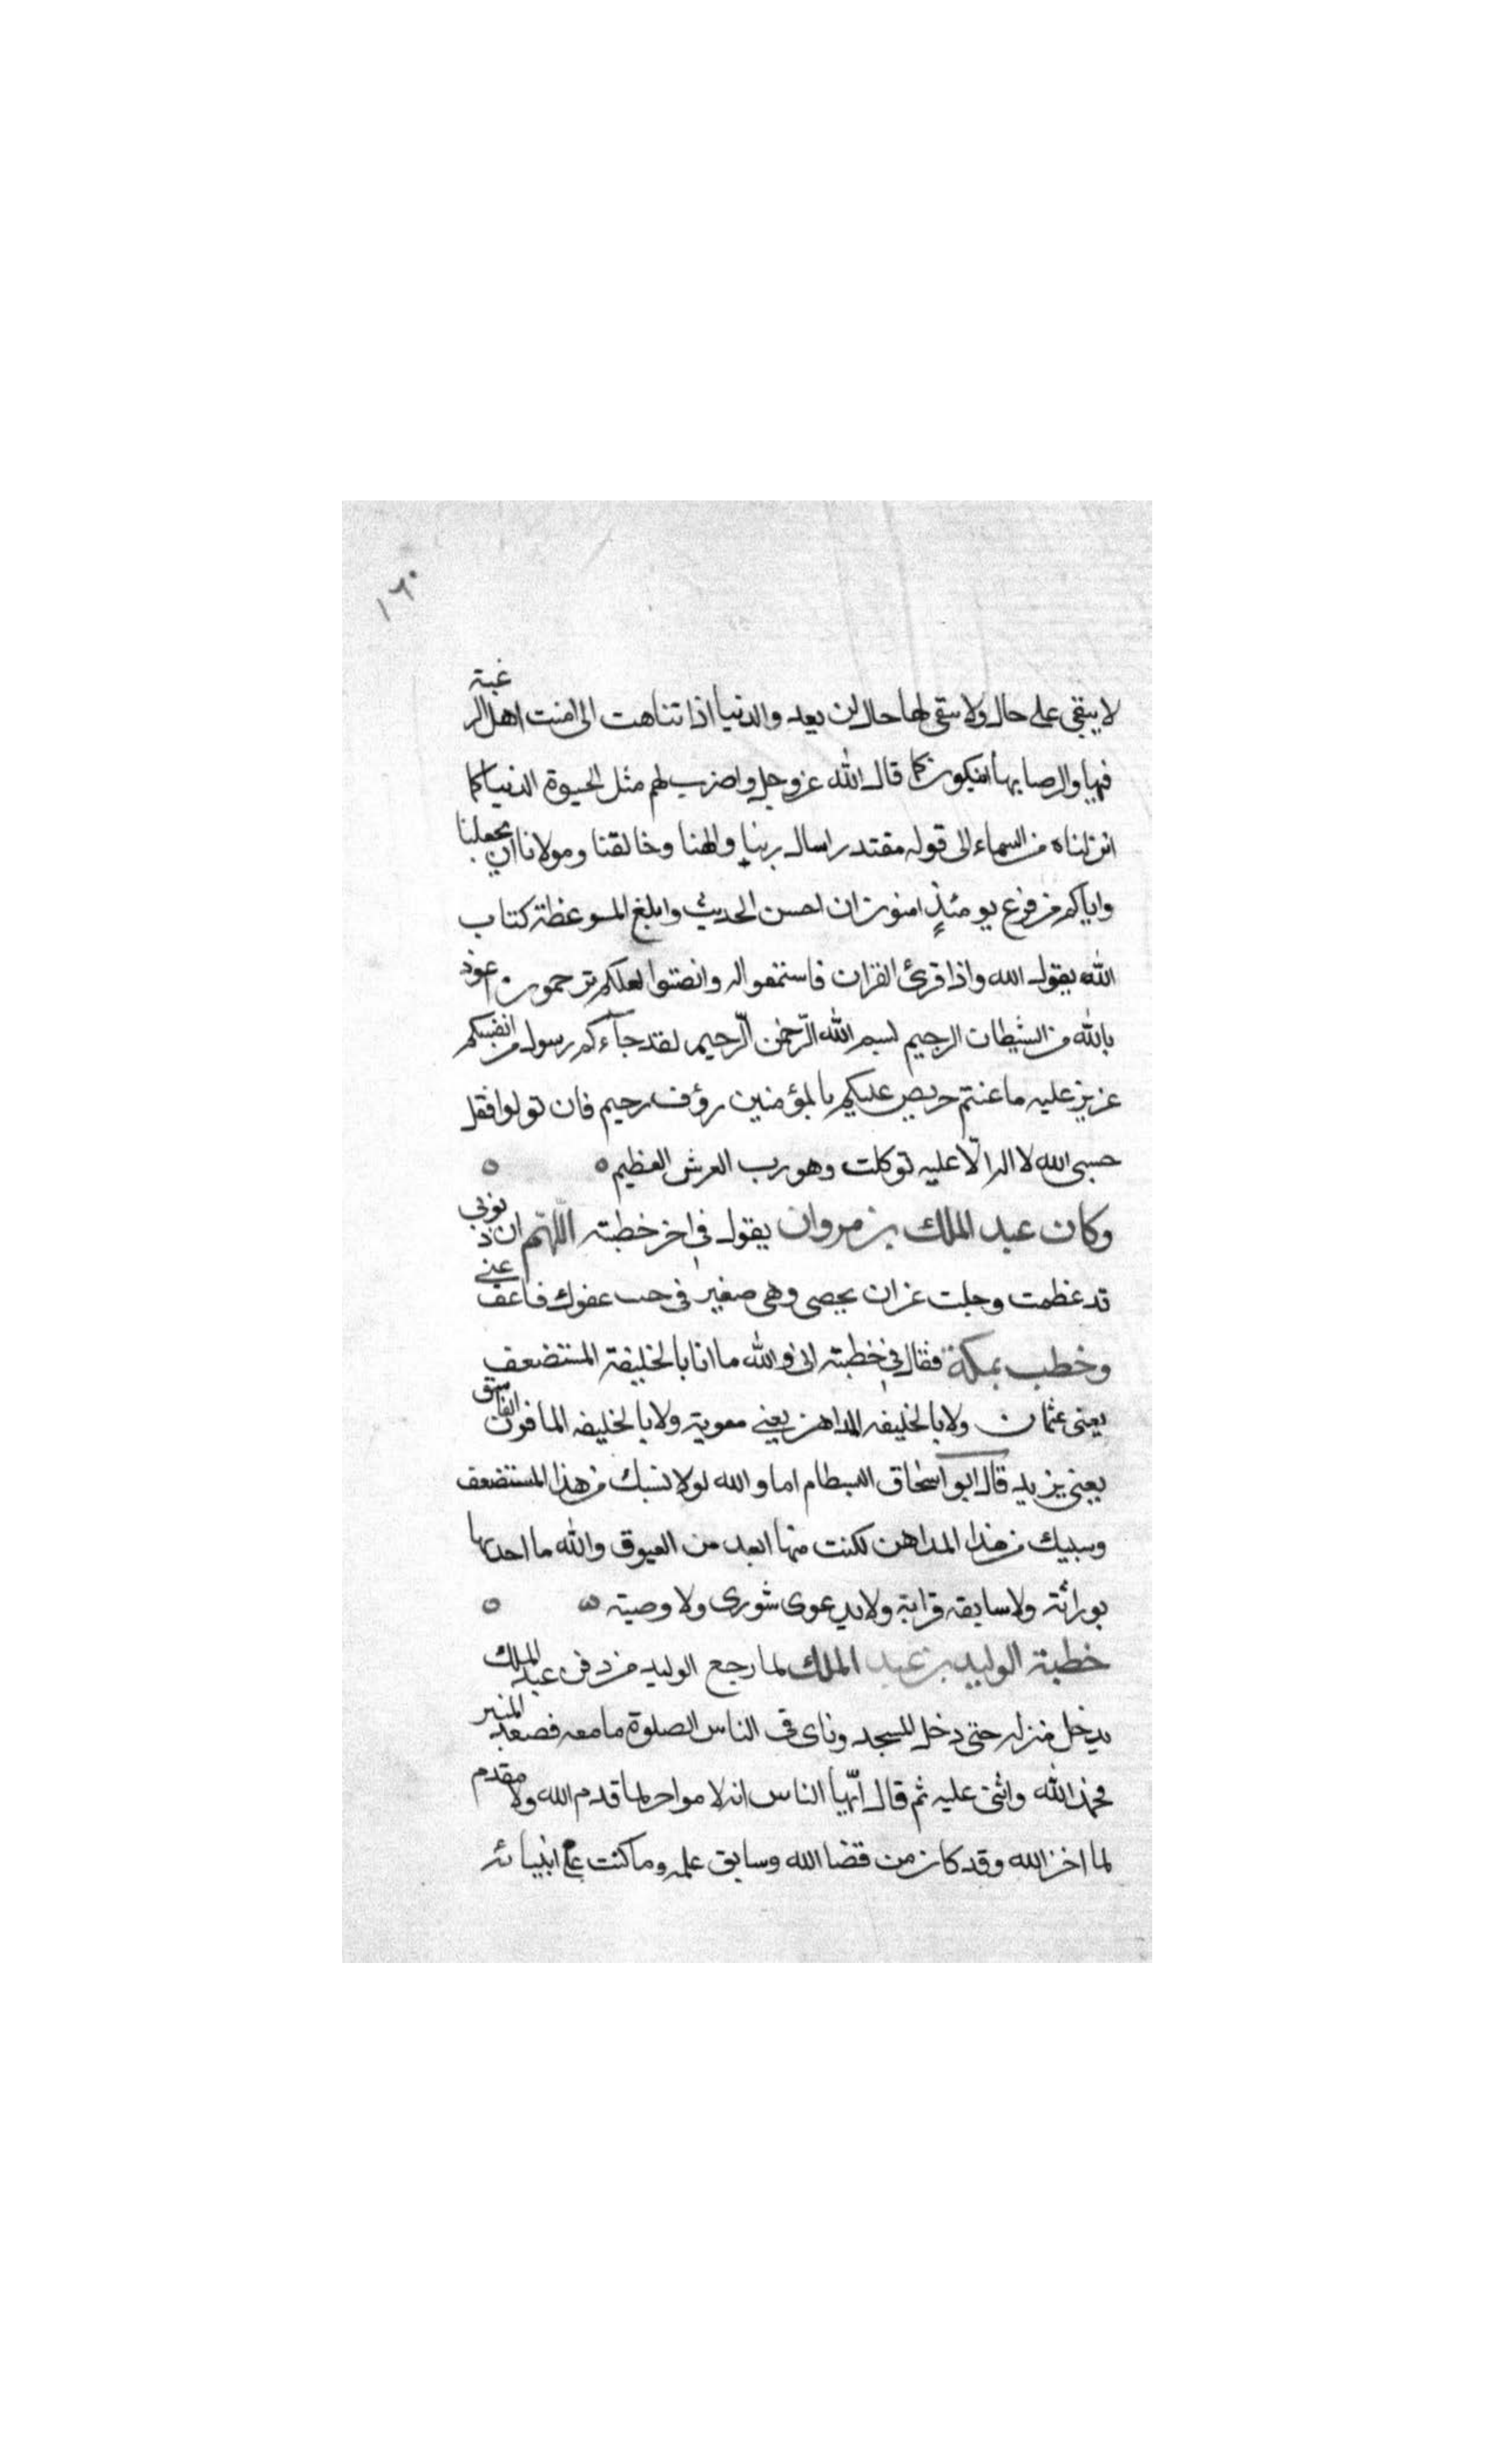 ١٦٠
لا يبقى على حال ولا يبقى لها حال لن يعد والدنيا اذا تناهت الى امنت اهل الرغبة
فيها والرضا بها ان يكون كما قال الله عز وجل واضرب لهم مثل الحيوة الدنيا كما
انزلناه من السماء الى قوله مقتدر اسال ربنا والهنا وخالقنا ومولانا ان يجعلنا
واياكم من فزع يومئذٍ امنون ان احسن الحديث وابلغ الموعظة كتاب
الله يقول الله واذا قرئ القران فاستمعوا له وانصتوا لعلكم ترحمون اعوذ
بالله من الشيطان الرجيم بسم الله الرّحمٰن الرّحيم لقد جآءكم رسول من انفسكم
عزيز عليه ما عنتم حريص عليكم بالمؤمنين رؤف رحيم فان تولوا فقل
حسبى الله لا اله الّا عليه توكلت وهو رب العرش العظيم ٥ ٥
وكان عبد الملك بن مروان يقول فى اخر خطبته اللّهّم ان ذنوبي
قد عظمت وجلت عن ان يحصى وهى صغير فى حب عفوك فاعف عني
وخطب بمكة فقال في خطبته انى والله ما انا بالخليفة المستضعف
يعنى عثمان ولا بالخليفه المداهن يعني معوية ولا بالخليفه المافون الفاسق
يعنى يزيد قال ابو اسحاق البسطام اما والله لولا نسبك من هذا المستضعف
وسببك من هذا المداهن لكنت منها ابعد من العيوق والله ما اخذتها
بوراثة ولا سابقه قرابة ولا بدعوى شورى ولا وصية ٥ ٥
خطبة الوليد بن عبد الملك لما رجع الوليد من دفن عبد الملك
يدخل منزله حتى دخل المسجد ونادى فى الناس الصلوة مامعه فصعد المنبر
فحمد الله واثنى عليه ثم قال ايّها الناس انه لا مواخر لما قدم الله ولا مقدم
لما اخر الله وقد كان من قضا الله وسابق علمه وما كتب على انبيائه